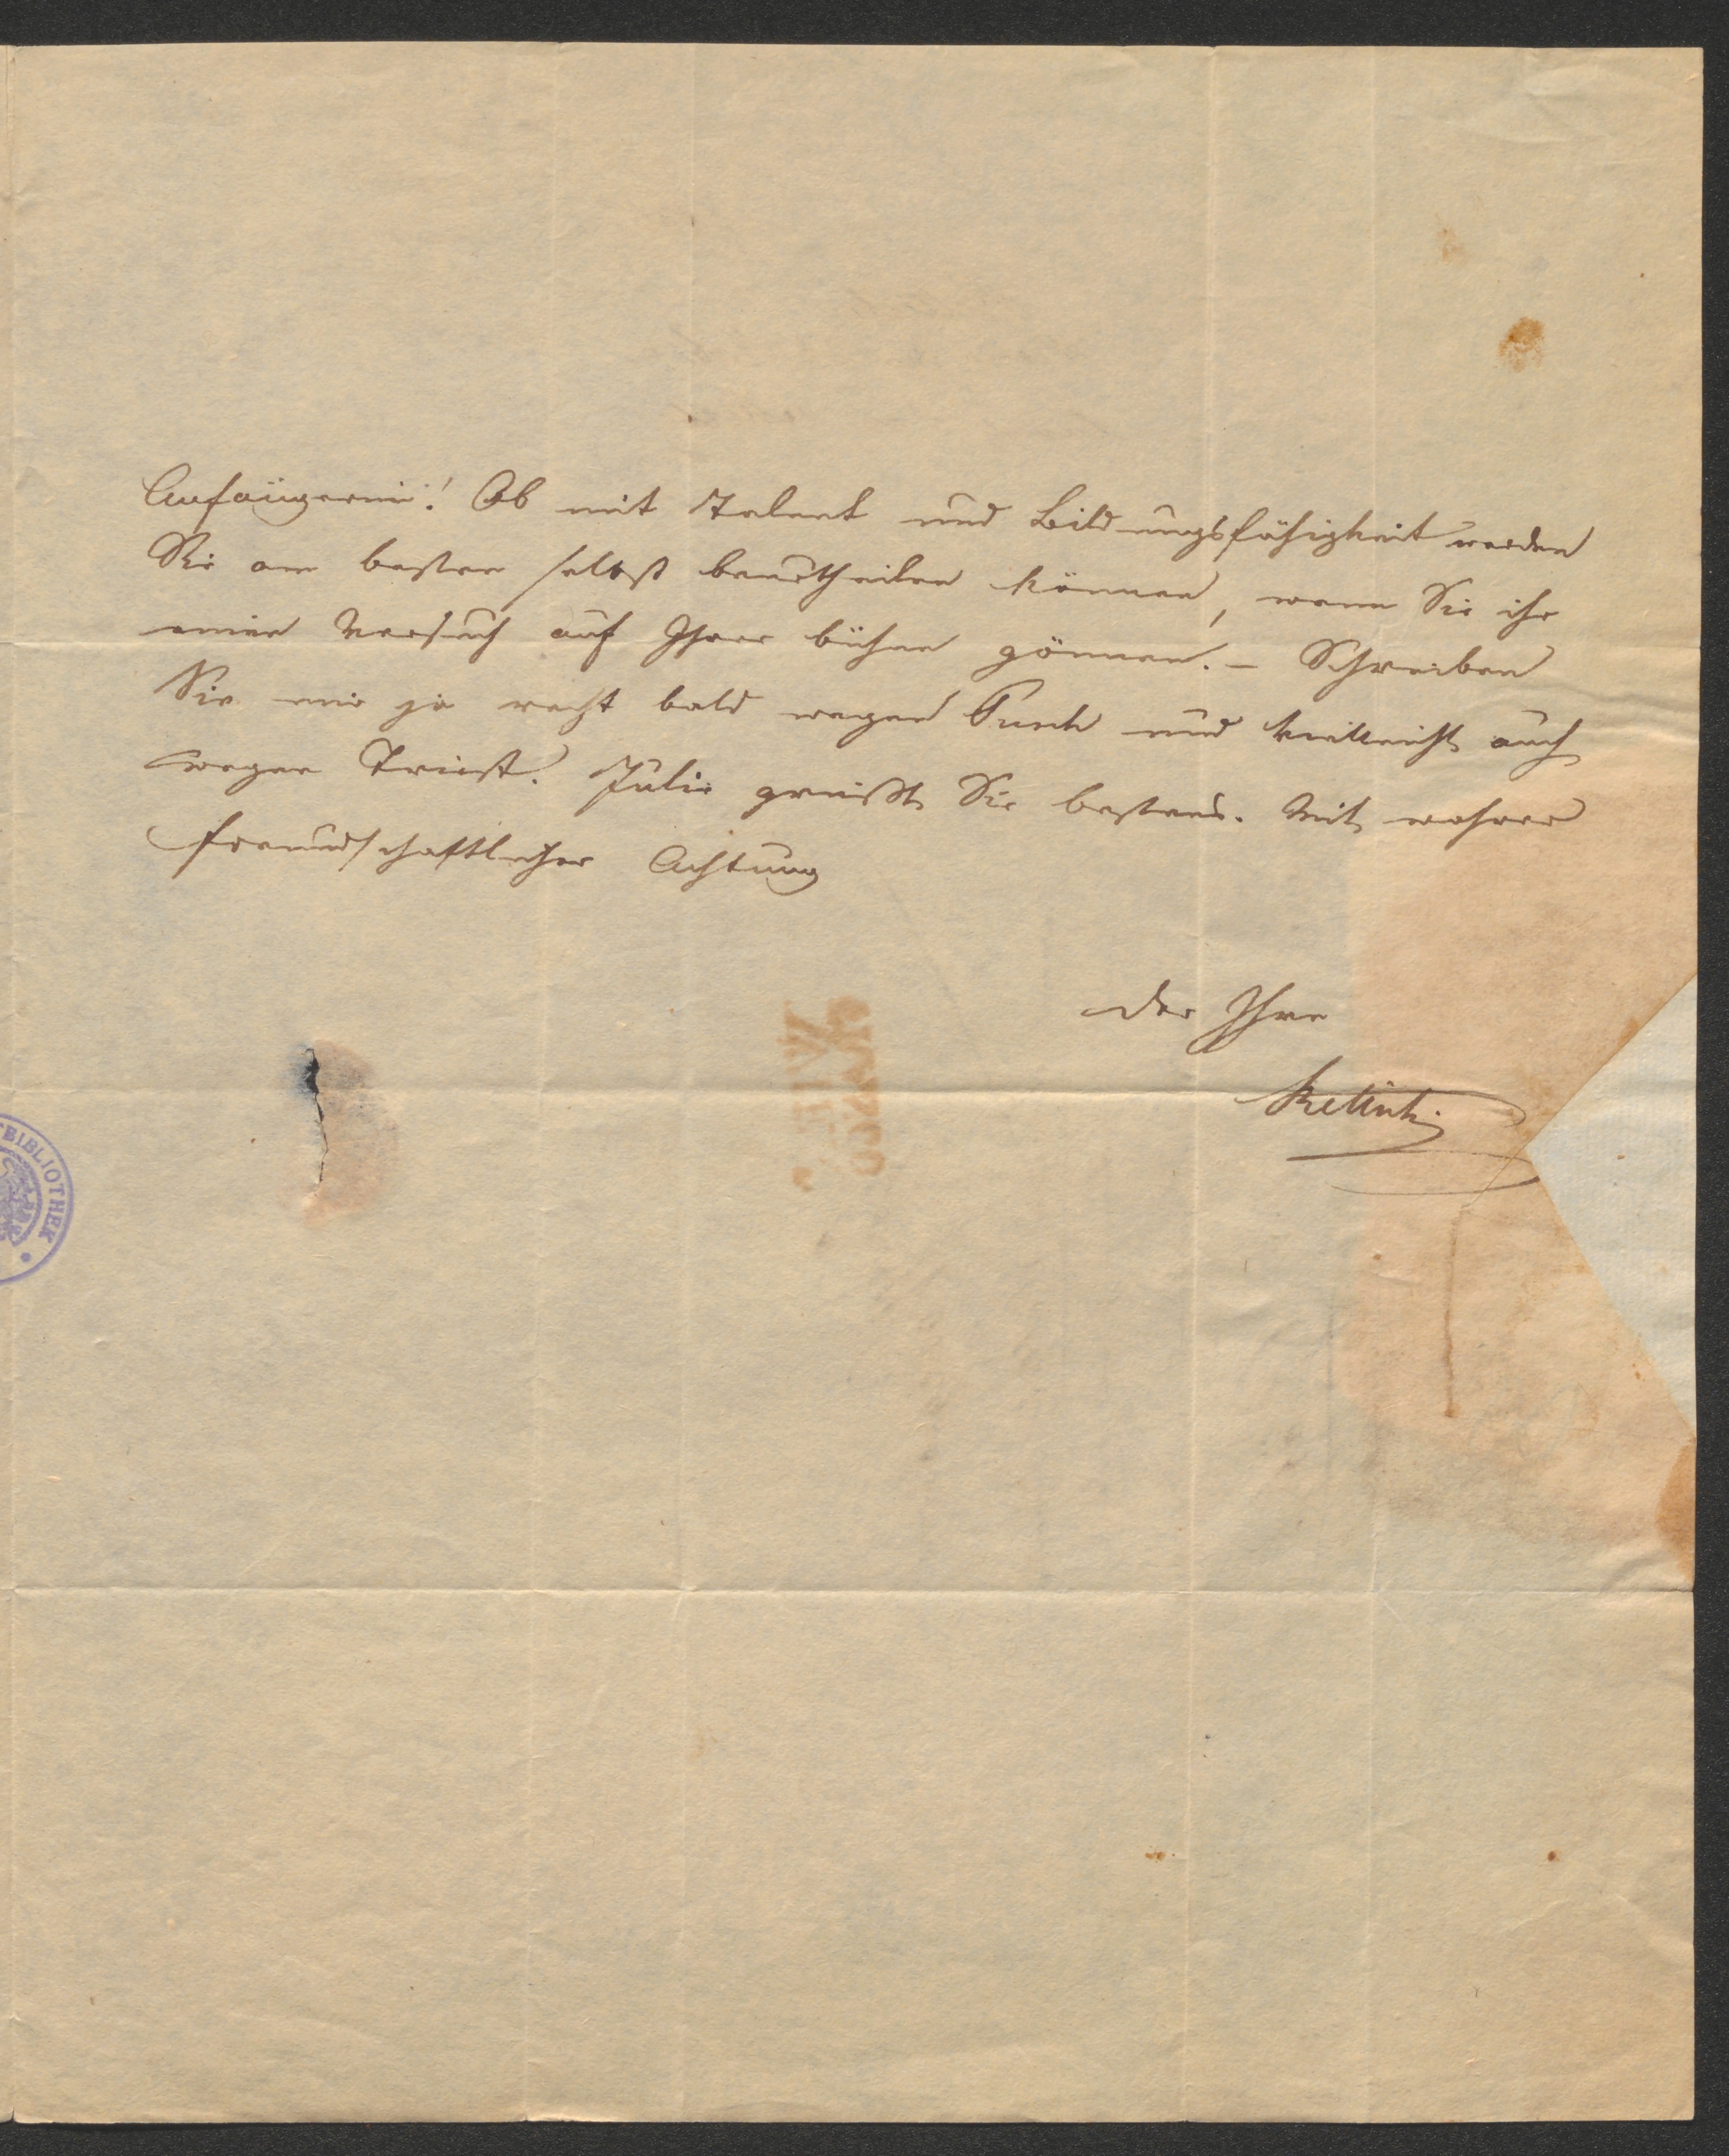 Anfängerin! Ob mit Talent und Bildungsfähigkeit werden
Sie am besten selbst beurtheilen können, wenn Sie ihr
einen Versuch auf Ihrer bühne gönnen. – Schreiben
Sie mir ja recht bald wegen und vielleicht auch
wegen Triest. Julie grüßt Sie bestens. Mit wahrer
freundschaftlicher Achtung
der Ihre
Rettich
BIBLIOTHEK